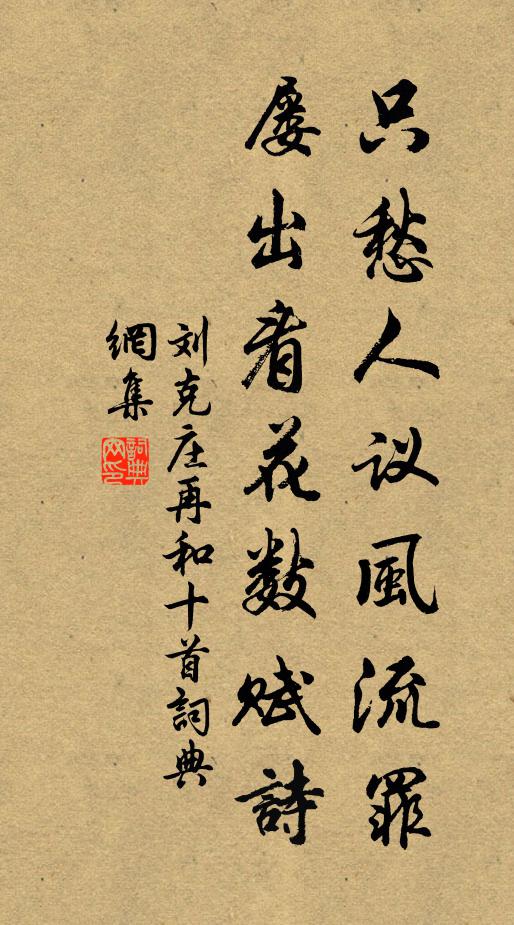 只愁人议風流罪
屡出看花数赋詩
刘克庄再和十首詞典
網集
詞典網印